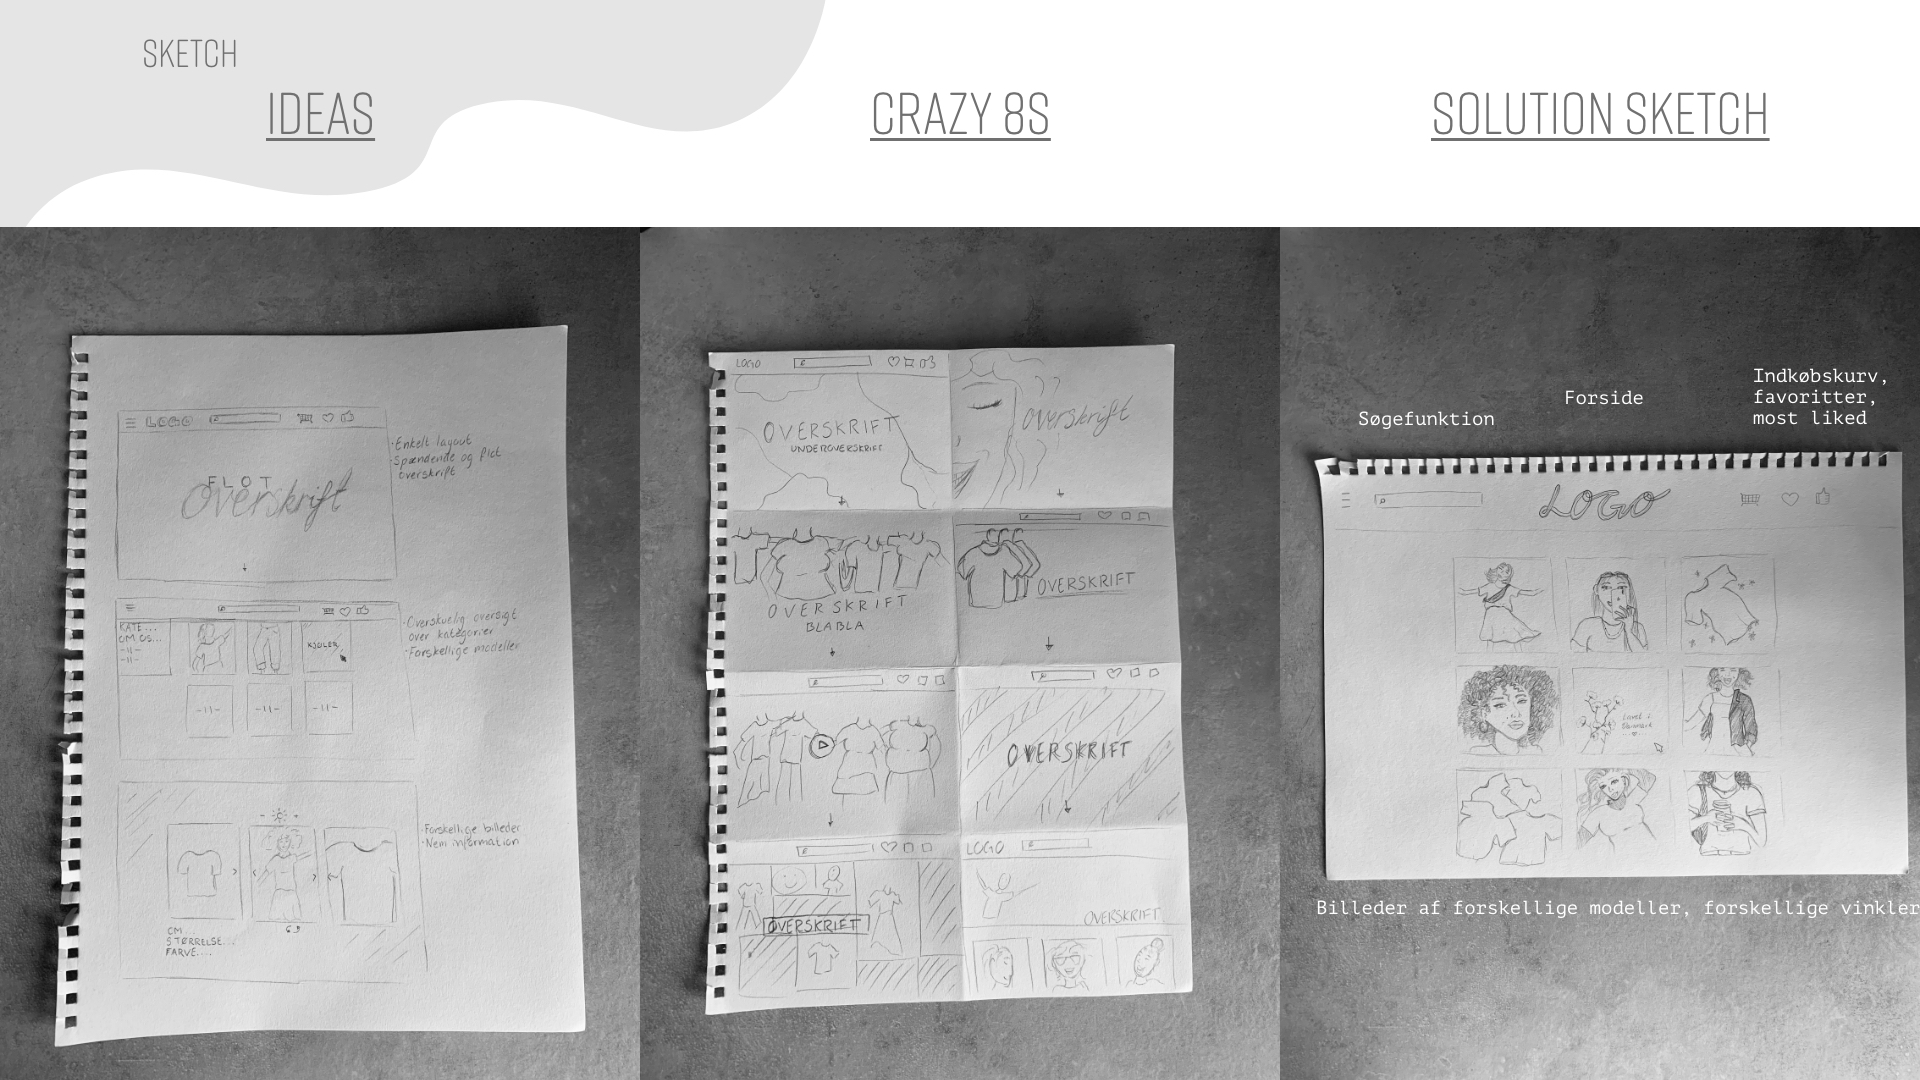 SKETCH
IDEAS
CRAZY 8S
SOLUTION SKETCH
LOGO
FLOT
Overskrift
·Enkelt layout
·Spændende og flot
overskrift
KATE...
OM OS...
-11-
-11-
KJOLER
-11-
-11-
-11-
·Overskuelig oversigt
over kategorier
·Forskellige modeller
·Forskellige billeder
·Nem information
OM...
STØRRELSE...
FARVE....
LOGO
OVERSKRIFT
UNDEROVERSKRIFT
Overskrift
OVERSKRIFT
BLABLA
OVERSKRIFT
OVERSKRIFT
OVERSKRIFT
LOGO
OVERSKRIFT
Søgefunktion
Forside
Indkøbskurv,
favoritter,
most liked
LOGO
Lavet i
Danmark
Billeder af forskellige modeller, forskellige vinkler